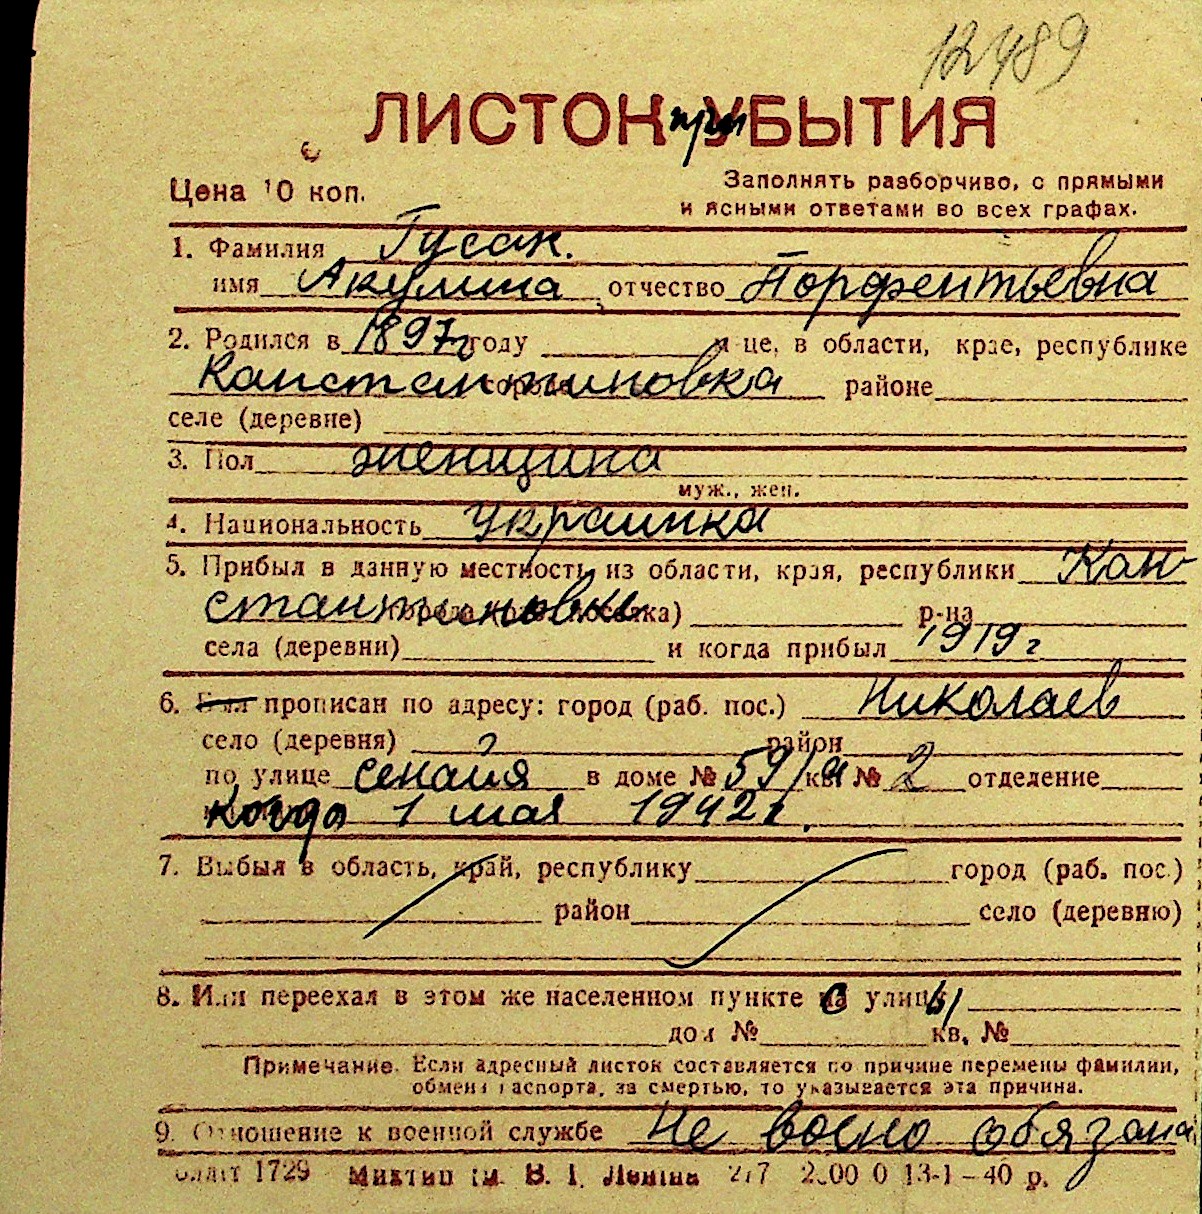 12489
ЛИСТОК при УБЫТИЯ
Цена 10 коп.
Заполнять разборчиво, с прямыми
и ясными ответами во всех графах.
1. Фамилия Гусак.
имя Акулина отчество Порфентьевна
2. Родился в 1897г году це, в области, крае, республике
Констентиновка районе
селе (деревне)
3. Пол женщина
муж., жен.
4. Национальность украинка
5. Прибыл в данную местность из области, края, республики Кон
стантиновки р-на
села (деревни) и когда прибыл 1919 г
6. Был прописан по адресу: город (раб. пос.) Николаев
село (деревня) район
по улице сенайя в доме № 59/а кв. № 2 отделение
когда 1 мая 1942 г.
7. Выбыл в область, край, республику город (раб. пос.)
район село (деревню)
8. Или переехал в этом же населенном пункте с улицы
дом № кв. №
Примечание. Если адресный листок составляется по причине перемены фамилии,
обмена паспорта, за смертью, то указывается эта причина.
9. Отношение к военной службе Не воено обязана
1729 им. В. І. Леніна 13-1-40 р.